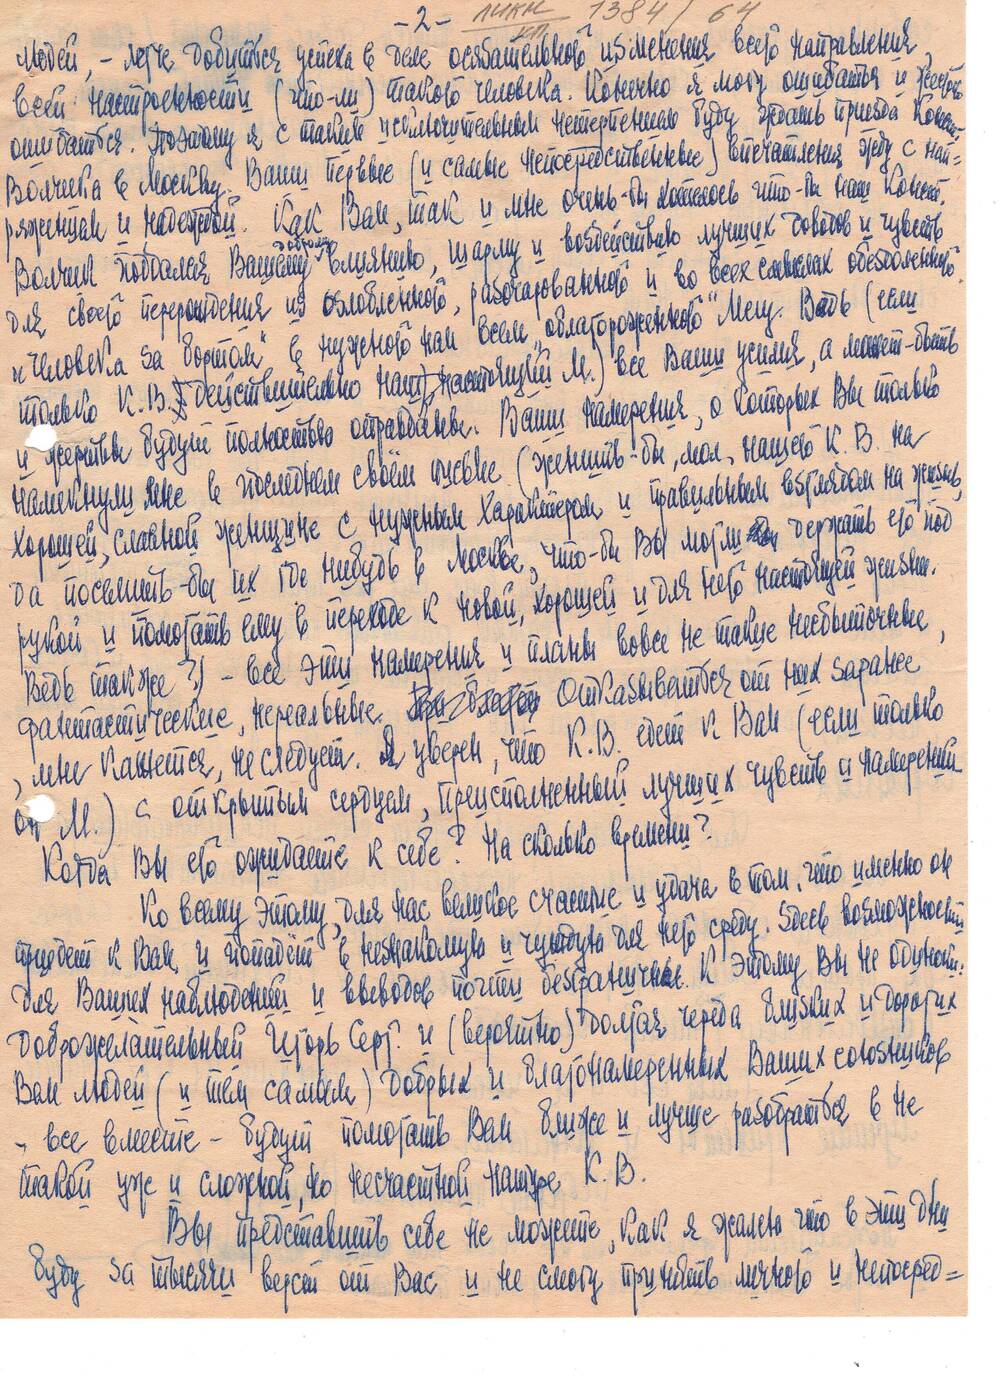 -2- ЛИКМ КП 1384/64
людей, - легче добиться успеха в деле осязательного изменения всего направления,
всей настроенности (что-ли) такого человека. Конечно я могу ошибаться и жестоко
ошибаться. Поэтому я с таким исключительным нетерпением буду ждать приезда Конст.
Волчика в Москву. Ваши первые (и самые непосредственные) впечатления жду с нап=
ряженцам и надеждой. Как Вам, так и мне очень-бы хотелось что-бы наш Конст.
Волчик поддался Вашему доброму влиянию, шарму и воздействию лучших советов и чувств
для своего перерождения из озлобленного, разочарованного и во всех смыслах обездоленного
"человека за бортом" в нужного нам всем "облагороженного" Мещ. Ведь (если
только К.В. действительно наш, настоящий М.) все Ваши усилия, а может-быть
и жертвы будут полностью оправданы. Ваши намерения, о которых Вы только
намекнули мне в последнем своём письме (женить-бы, мол, нашего К.В. на
хорошей, славной женщине с нужным характером и правильным взглядом на жизнь,
да поселить-бы их где нибудь в Москве, что-бы Вы могли держать его под
рукой и помогать ему в переходе к новой, хорошей и для него настоящей жизни.
Ведь так же?) - все эти намерения и планы вовсе не такие несбыточные,
фантастические, нереальные. Отказываться от них заранее
, мне кажется, не следует. Я уверен, что К.В. едет к Вам (если только
он М.) с открытым сердцем, преисполненный лучших чувств и намерений
Когда Вы его ожидаете к себе? На сколько времени?
Ко всему этому, для нас великое счастье и удача в том, что именно он
приедет к Вам, и попадёт в незнакомую и чуждую для него среду. Здесь возможности
для Ваших наблюдений и выводов почти безграничны. К этому Вы не одиноки:
доброжелательный Игорь Серг. и (вероятно) долгая череда близких и дорогих
Вам людей (и тем самым) добрых и благонамеренных Ваших союзников
- все вместе - будут помогать Вам ближе и лучше разобраться в не
такой уж и сложной, но несчастной натуре К.В.
Вы представить себе не можете, как я жалею что в эти дни
буду за тысячи верст от Вас и не смогу принять личного и непосред=